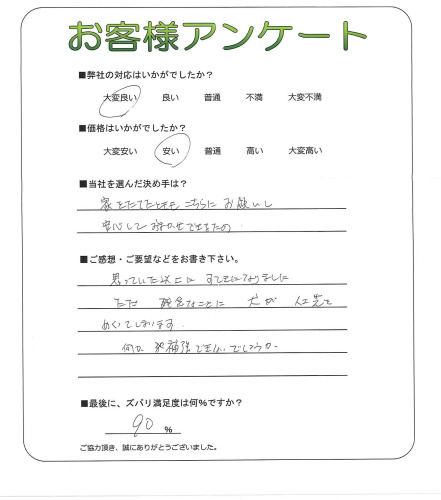 お客様アンケート
■弊社の対応はいかがでしたか？
大変良い 良い 普通 不満 大変不満
■価格はいかがでしたか？
大変安い 安い 普通 高い 大変高い
■当社を選んだ決め手は？
家をたてたときも こちらに お願いし
安心して おまかせできたの
■ご感想・ご要望などをお書き下さい。
思っていた以上に すてきになりました
ただ 残念なことに 犬が 人工芝を
めくってしまいます.
何か 補強できないでしょうか.
■最後に、ズバリ満足度は何%ですか？
90 %
ご協力頂き、誠にありがとうございました。